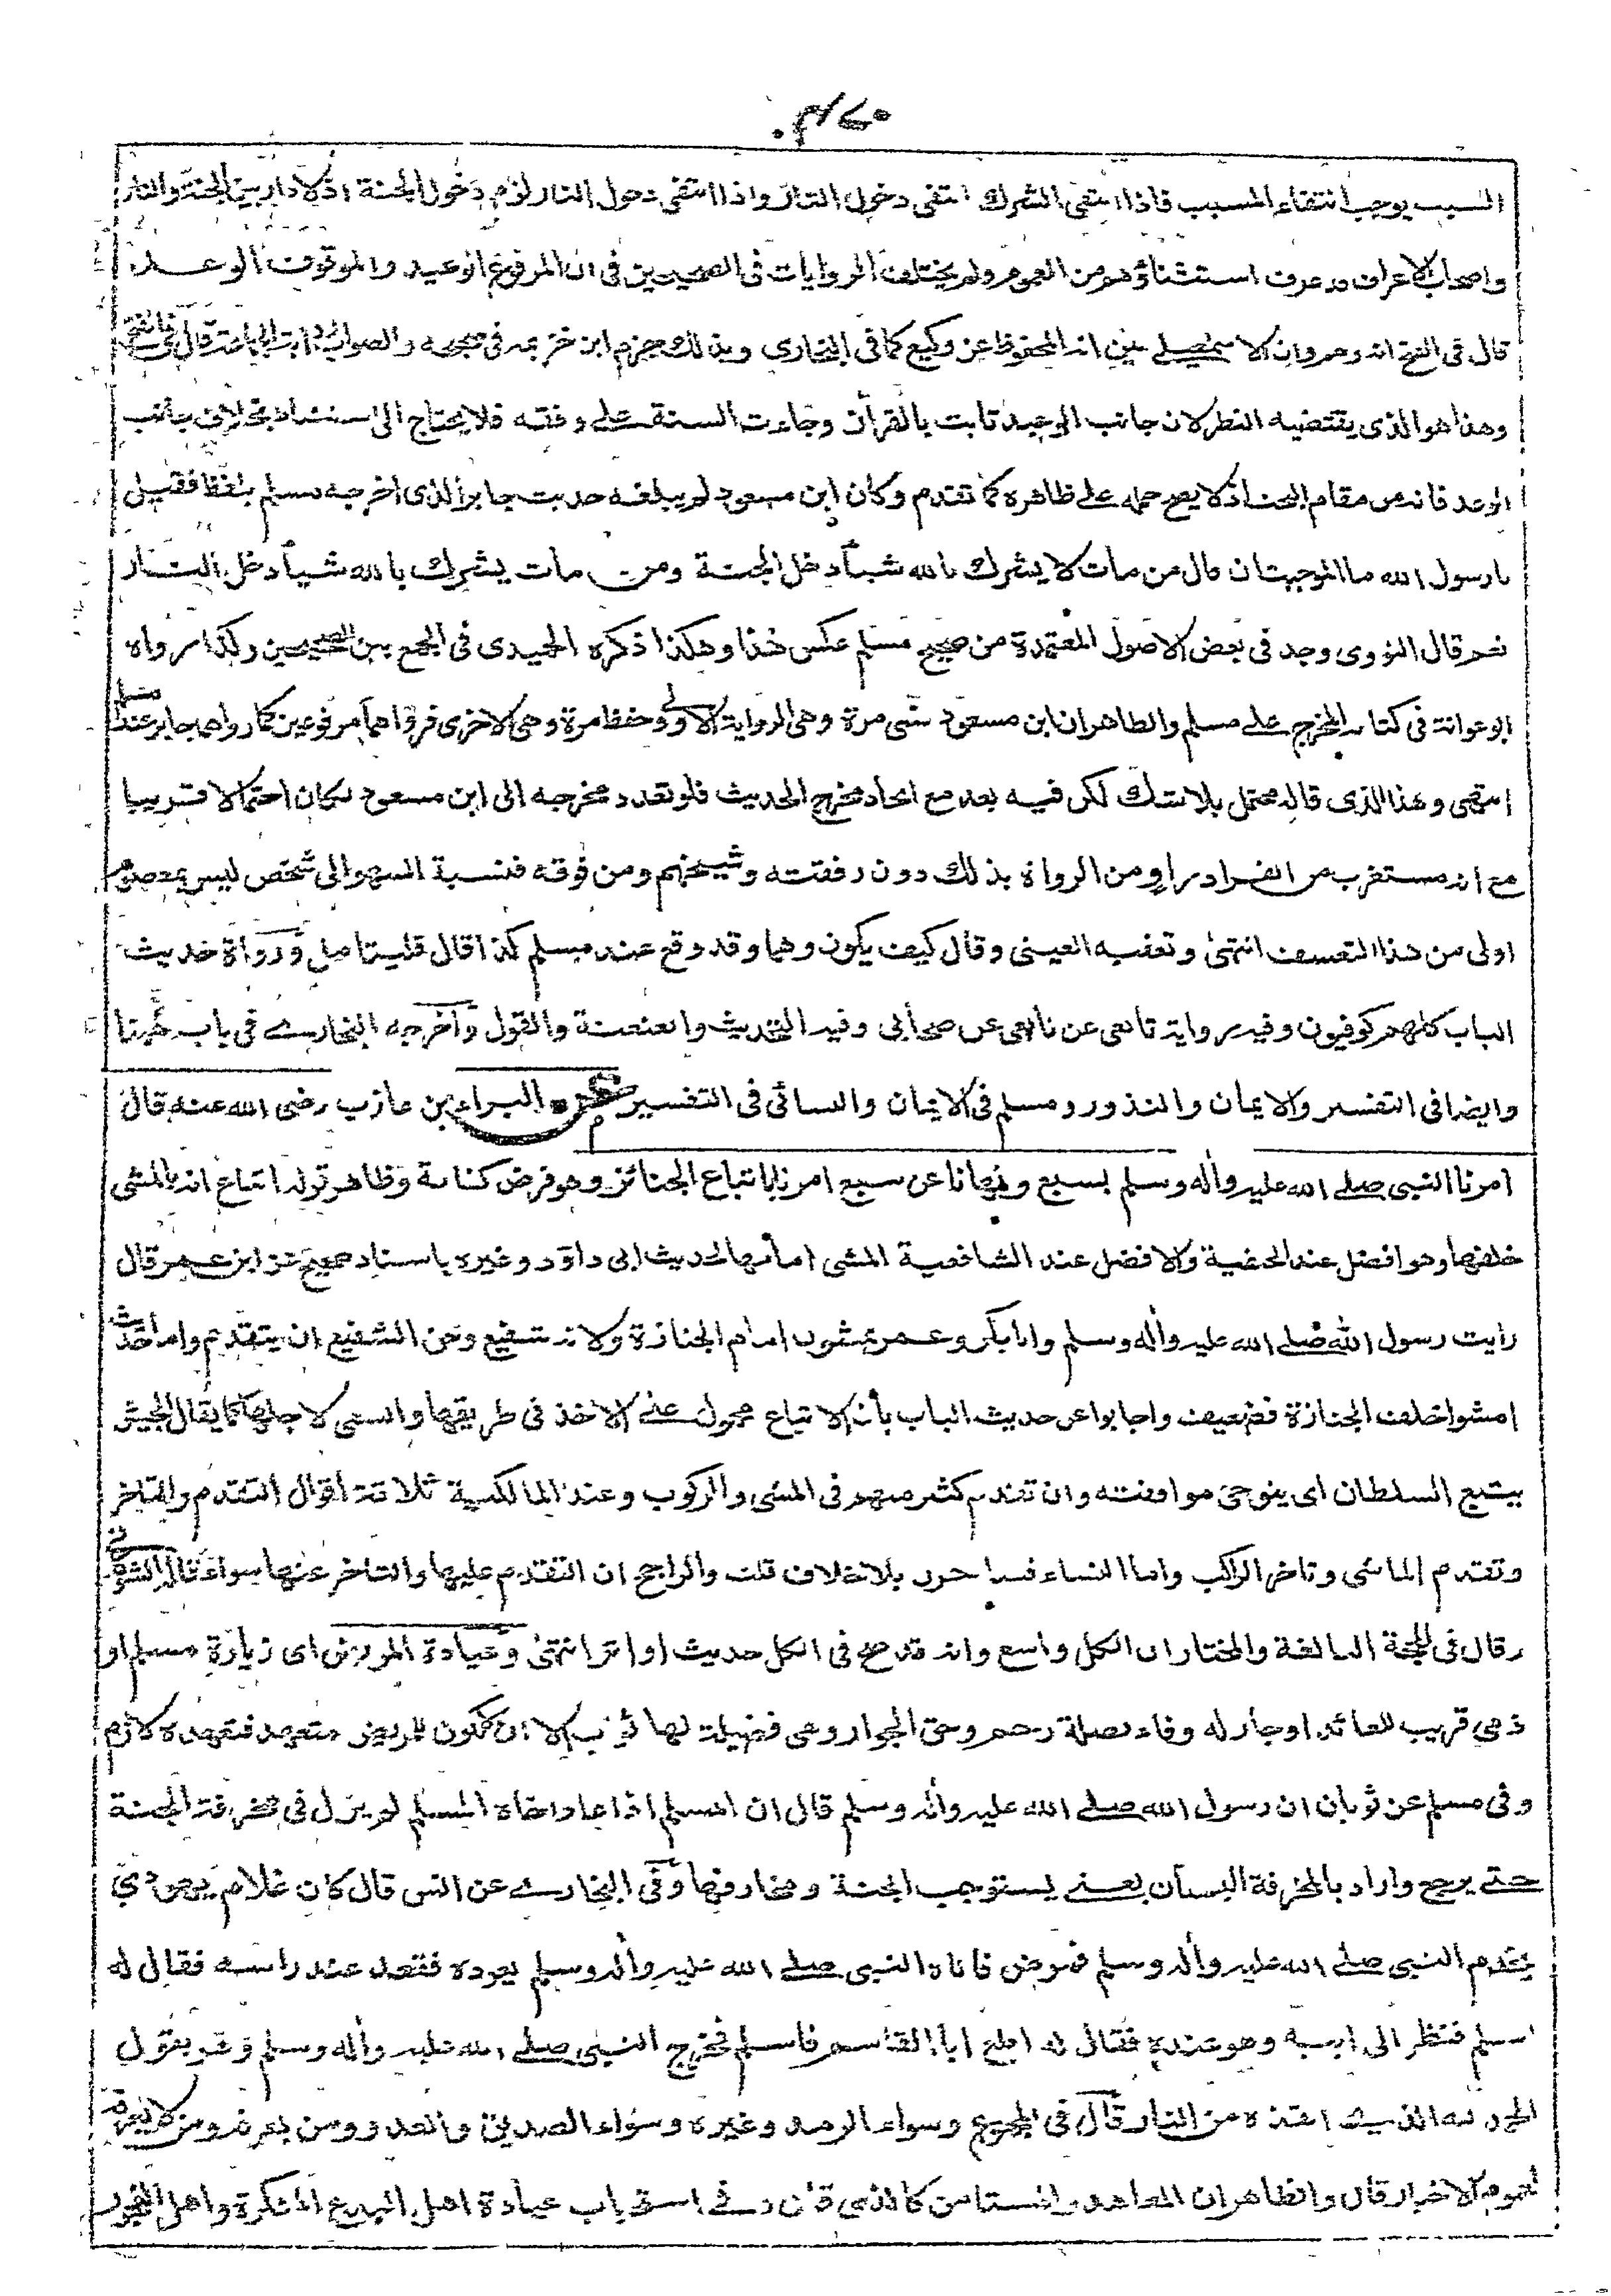 ٤٧٠
السبب يوجب انتفاء المسبب فاذا انتفى الشرك انتفى دخول النار واذا انتفى دخول النار لزم دخول الجنة اذ لا دار بين الجنة والنار
واصحاب الاعراف قد عرف استثناؤهم من العموم ولم يختلف الروايات فى الصحيحين فى ان المرفوع الوعيد والموقوف الوعد
قال فى الفتح انه وهم وان الاسمعيلى بين ان المحفوظ عن وكيع كما فى البخارى وبذلك جزم ابن خزيمة فى صحيحه والصواب رواية الجماعة قال فى الفتح
وهذا هو الذى يقتضيه النظر لان جانب الوعيد ثابت بالقرآن وجاءت السنة على وفقه فلا يحتاج الى استنباط بخلاف جانب
الوعد فانه من مقام البحث اذ لا يصح حمله على ظاهره كما تقدم وكان ابن مسعود لم يبلغه حديث جابر الذى اخرجه مسلم بلفظ فقيل
يا رسول الله ما الموجبتان قال من مات لا يشرك بالله شيأ دخل الجنة ومن مات يشرك بالله شيأ دخل النار
نعم قال النووى وجد فى بعض الاصول المعتمدة من صحيح مسلم عكس هذا وهكذا ذكره الحميدى فى الجمع بين الصحيحين وكذا رواه
ابو عوانة فى كتابه المخرج على مسلم والظاهر ان ابن مسعود نسى مرة وهى الرواية الاولى وحفظ مرة وهى الاخرى فرواهما مرفوعين كما رواهما جابر عند مسلم
انتهى وهذا الذى قاله محتمل بلا شك لكن فيه بعد مع اتحاد مخرج الحديث فلو تعدد مخرجه الى ابن مسعود لكان احتمالا قريبا
مع انه مستغرب من انفراد راو من الرواة بذلك دون رفقته وشيخهم ومن فوقه فنسبة السهو الى شخص ليس بمعصوم
اولى من هذا التعسف انتهى وتعقبه العينى وقال كيف يكون وهما وقد وقع عند مسلم كذا قال فليتامل ورواة حديث
الباب كلهم كوفيون وفيه رواية تابعى عن تابعى عن صحابى وفيه التحديث والعنعنة والقول واخرجه البخارى فى باب هنا
وايضا فى التفسير والايمان والنذور ومسلم فى الايمان والنسائى فى التفسير عن البراء بن عازب رضى الله عنه قال
امرنا النبى صلى الله عليه وأله وسلم بسبع ونهانا عن سبع امرنا باتباع الجنائز وهو فرض كفاية وظاهر قوله اتباع انه بالمشى
خلفها وهو افضل عند الحنفية والافضل عند الشافعية المشى امامها لحديث ابى داود وغيره باسناد صحيح عن ابن عمر قال
رايت رسول الله صلى الله عليه وأله وسلم وابا بكر وعمر يمشون امام الجنازة ولانه شفيع وحق الشفيع ان يتقدم واما حديث
امشوا خلف الجنازة فضعيف واجابوا عن حديث الباب بأن الاتباع محمول على الاخذ فى طريقها والسعى لاجلها كما يقال الجيش
يتبع السلطان اى يتوخى موافقته وان تقدم كثير منهم فى المشى والركوب وعند المالكية ثلاثة اقوال التقدم والتاخر
وتقدم الماشى وتاخر الراكب واما النساء فيتاخرن بلا خلاف قلت والراجح ان التقدم عليها والتاخر عنها سواء قاله الشوكانى
وقال فى الحجة البالغة والمختار ان الكل واسع وانه قد صح فى الكل حديث او اثر انتهى وعيادة المريض اى زيارة مسلم او
ذمى قريب للعائد او جار له وفاء بصلة رحم وحق الجوار وهى فضيلة لها ثواب الا ان لا يكون للمريض متعهد فتعهده لازم
وفى مسلم عن ثوبان ان رسول الله صلى الله عليه وأله وسلم قال ان المسلم اذا عاد اخاه المسلم لم يزل فى مخرفة الجنة
حتى يرجع واراد بالمخرفة البستان يعنى يستوجب الجنة ومخارفها وفى البخارى عن انس قال كان غلام يهودى
يخدم النبى صلى الله عليه وأله وسلم فمرض فاتاه النبى صلى الله عليه وأله وسلم يعوده فقعد عند راسه فقال له
اسلم فنظر الى ابيه وهو عنده فقال له اطع ابا القاسم فاسلم فخرج النبى صلى الله عليه وأله وسلم وهو يقول
الحمد لله الذى انقذه من النار قال فى المجموع وسواء الرمد وغيره وسواء الصديق والعدو ومن يعرفه ومن لا يعرفه
لعموم الاخبار قال والظاهر ان المعاهد والمستامن كالذمى قال وفى استحباب عيادة اهل البدع المنكرة واهل الفجور